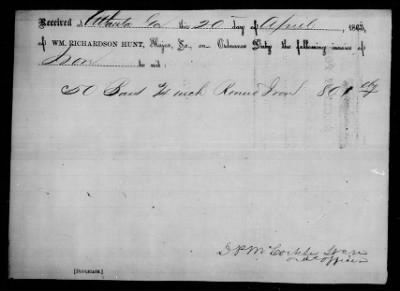 Received at Atlanta Ga the 20 day of April, 1863,
of WM. RICHARDSON HUNT, Major, &c., on Ordnance Duty the following invoice of
Iron to wit:
50 Bars 3/4 inch Round Iron 801
[DUPLICATE.]